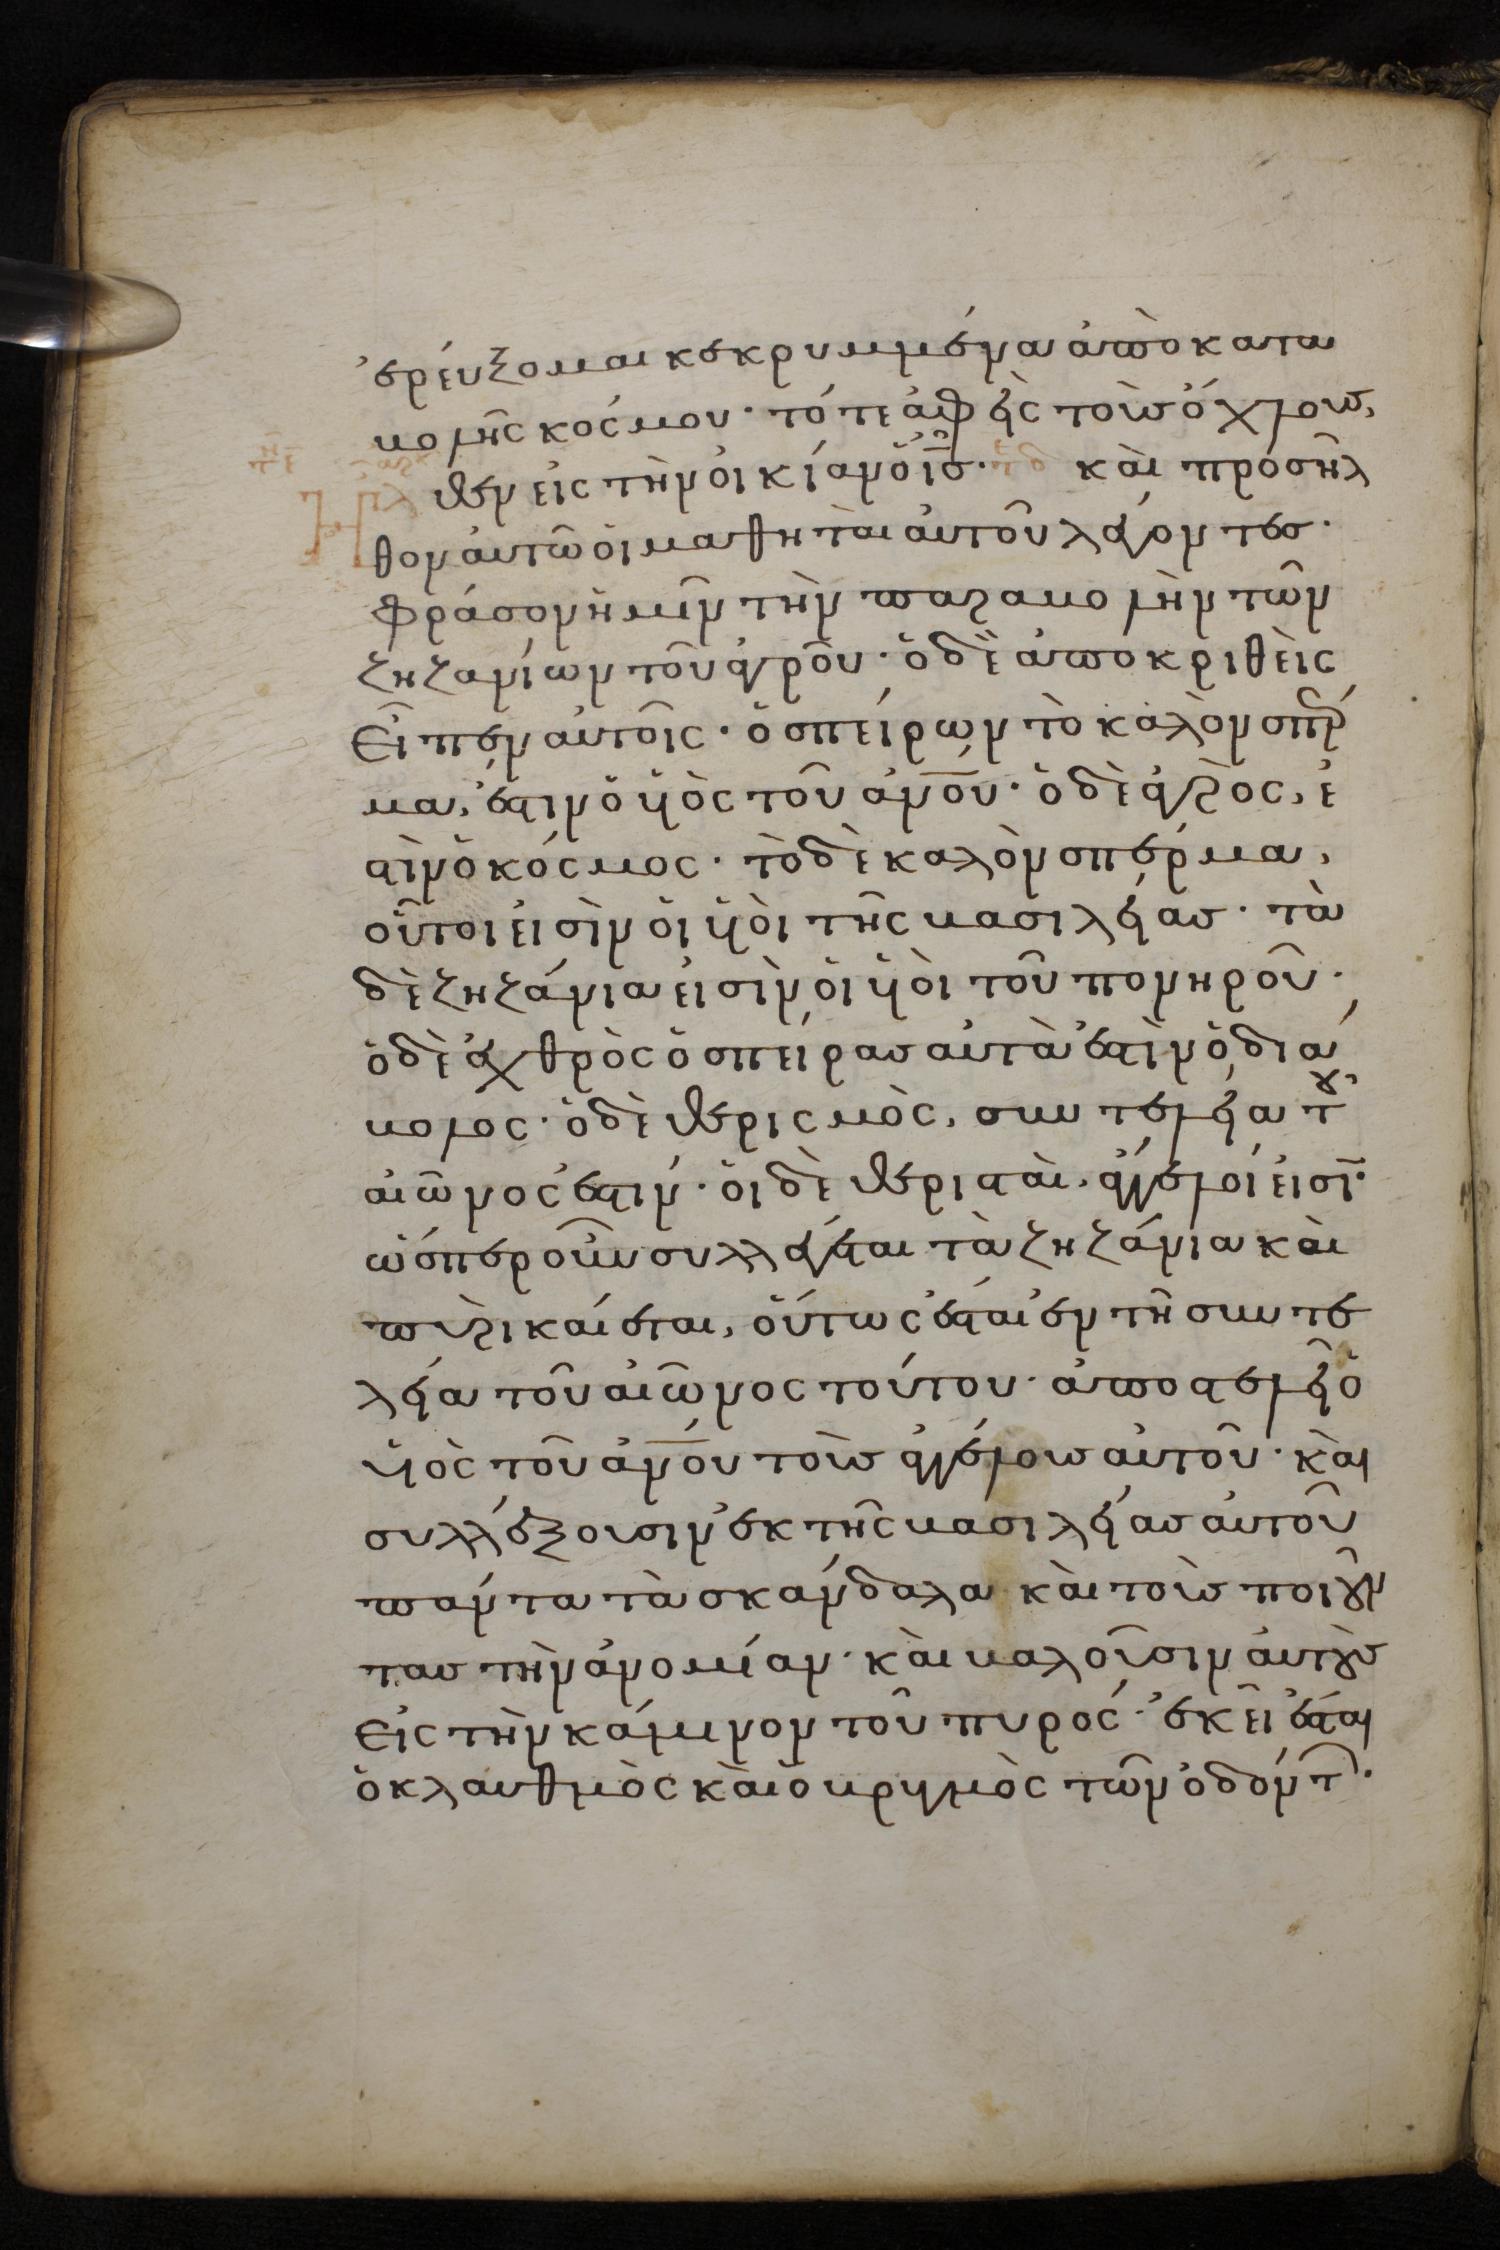 ἐρεύξομαι κεκρυμμένα ἀπὸ κατα
βολῆς κόσμου· τότε ἀφεὶς τοὺς ὄχλους,
ἦλθεν εἰς τὴν οἰκίαν ὁ ἰς̅· καὶ προσῆλ
θον αὐτῶ οἱ μαθηταὶ αὐτοῦ λέγοντες·
φράσον ἡμῖν τὴν παραβολὴν τῶν
ζηζανίων τοῦ ἀγροῦ· ὁ δὲ ἀποκριθεὶς
εἶπεν αὐτοῖς· ὁ σπείρων τὸ καλὸν σπέρ
μα, ἐστιν ὁ ὑιὸς τοῦ ἀν̅ου· ὁ δὲ ἀγρὸς, ἐ
στὶν ὁ κόσμος· τὸ δὲ καλὸν σπέρμα,
οὗτοι εἰσὶν οἱ ὑιοὶ τῆς βασιλείας· τὰ
δὲ ζηζάνια εἰσὶν οἱ ὑιοὶ τοῦ πονηροῦ·
ὁ δὲ ἐχθρὸς ὁ σπείρας αὐτὰ ἐστὶν ὁ διά
βολος· ὁ δὲ θερισμὸς, συντέλεια τοῦ
αἰῶνος ἐστίν· οἱ δὲ θερισταὶ, ἄγγελοί εἰσι̅·
ὥσπερ οὖν συλλέγεται τὰ ζηζάνια καὶ
πυρὶ καίεται, οὕτως ἔσται ἐν τῆ συντε
λεία τοῦ αἰῶνος τούτου· ἀποστελεῖ ὁ
ὑιὸς τοῦ ἀν̅ου τοὺς ἀγγέλους αὐτοῦ· καὶ
συλλέξουσιν ἐκ τῆς βασιλείας αὐτοῦ
πάντα τὰ σκάνδαλα καὶ τοὺς ποιοῦν
τας τὴν ἀνομίαν· καὶ βαλοῦσιν αὐτοὺς
εἰς τὴν κάμινον τοῦ πυρός· ἐκεῖ ἔσται
ὁ κλαυθμὸς καὶ ὁ βρυγμὸς τῶν ὀδόντ·